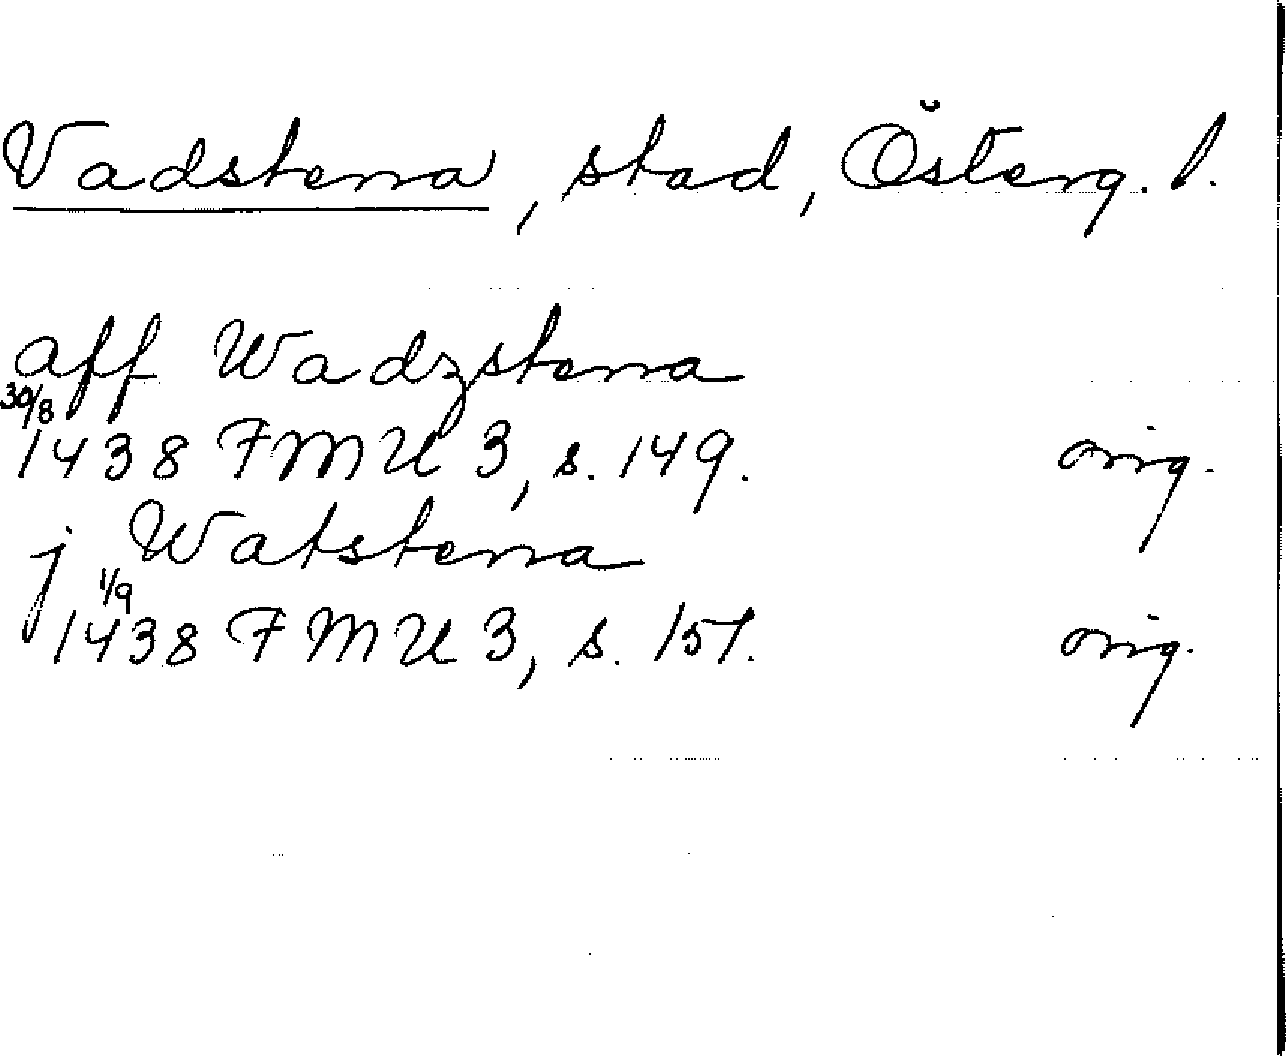 Vadstena, stad, Österg. l.
aff Wadzstena
30/8
1438 FMU 3, s. 149. orig.
j Watstena
1/9
1438 FMU 3, s. 151. orig.